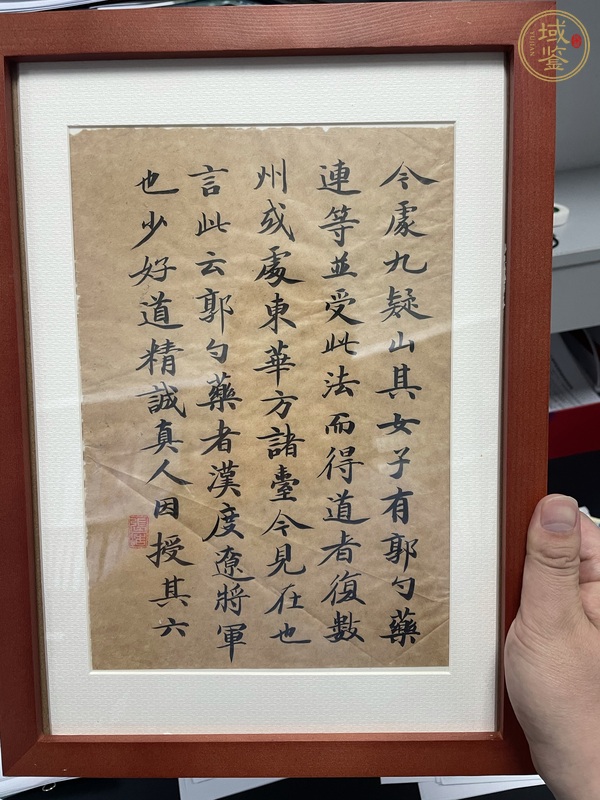 今處九疑山其女子有郭勺藥
連等並受此法而得道者復數
州或處東華方諸臺今見在也
言此云郭勺藥者漢度遼將軍
也少好道精誠真人因授其六
域鉴
YUJIAN